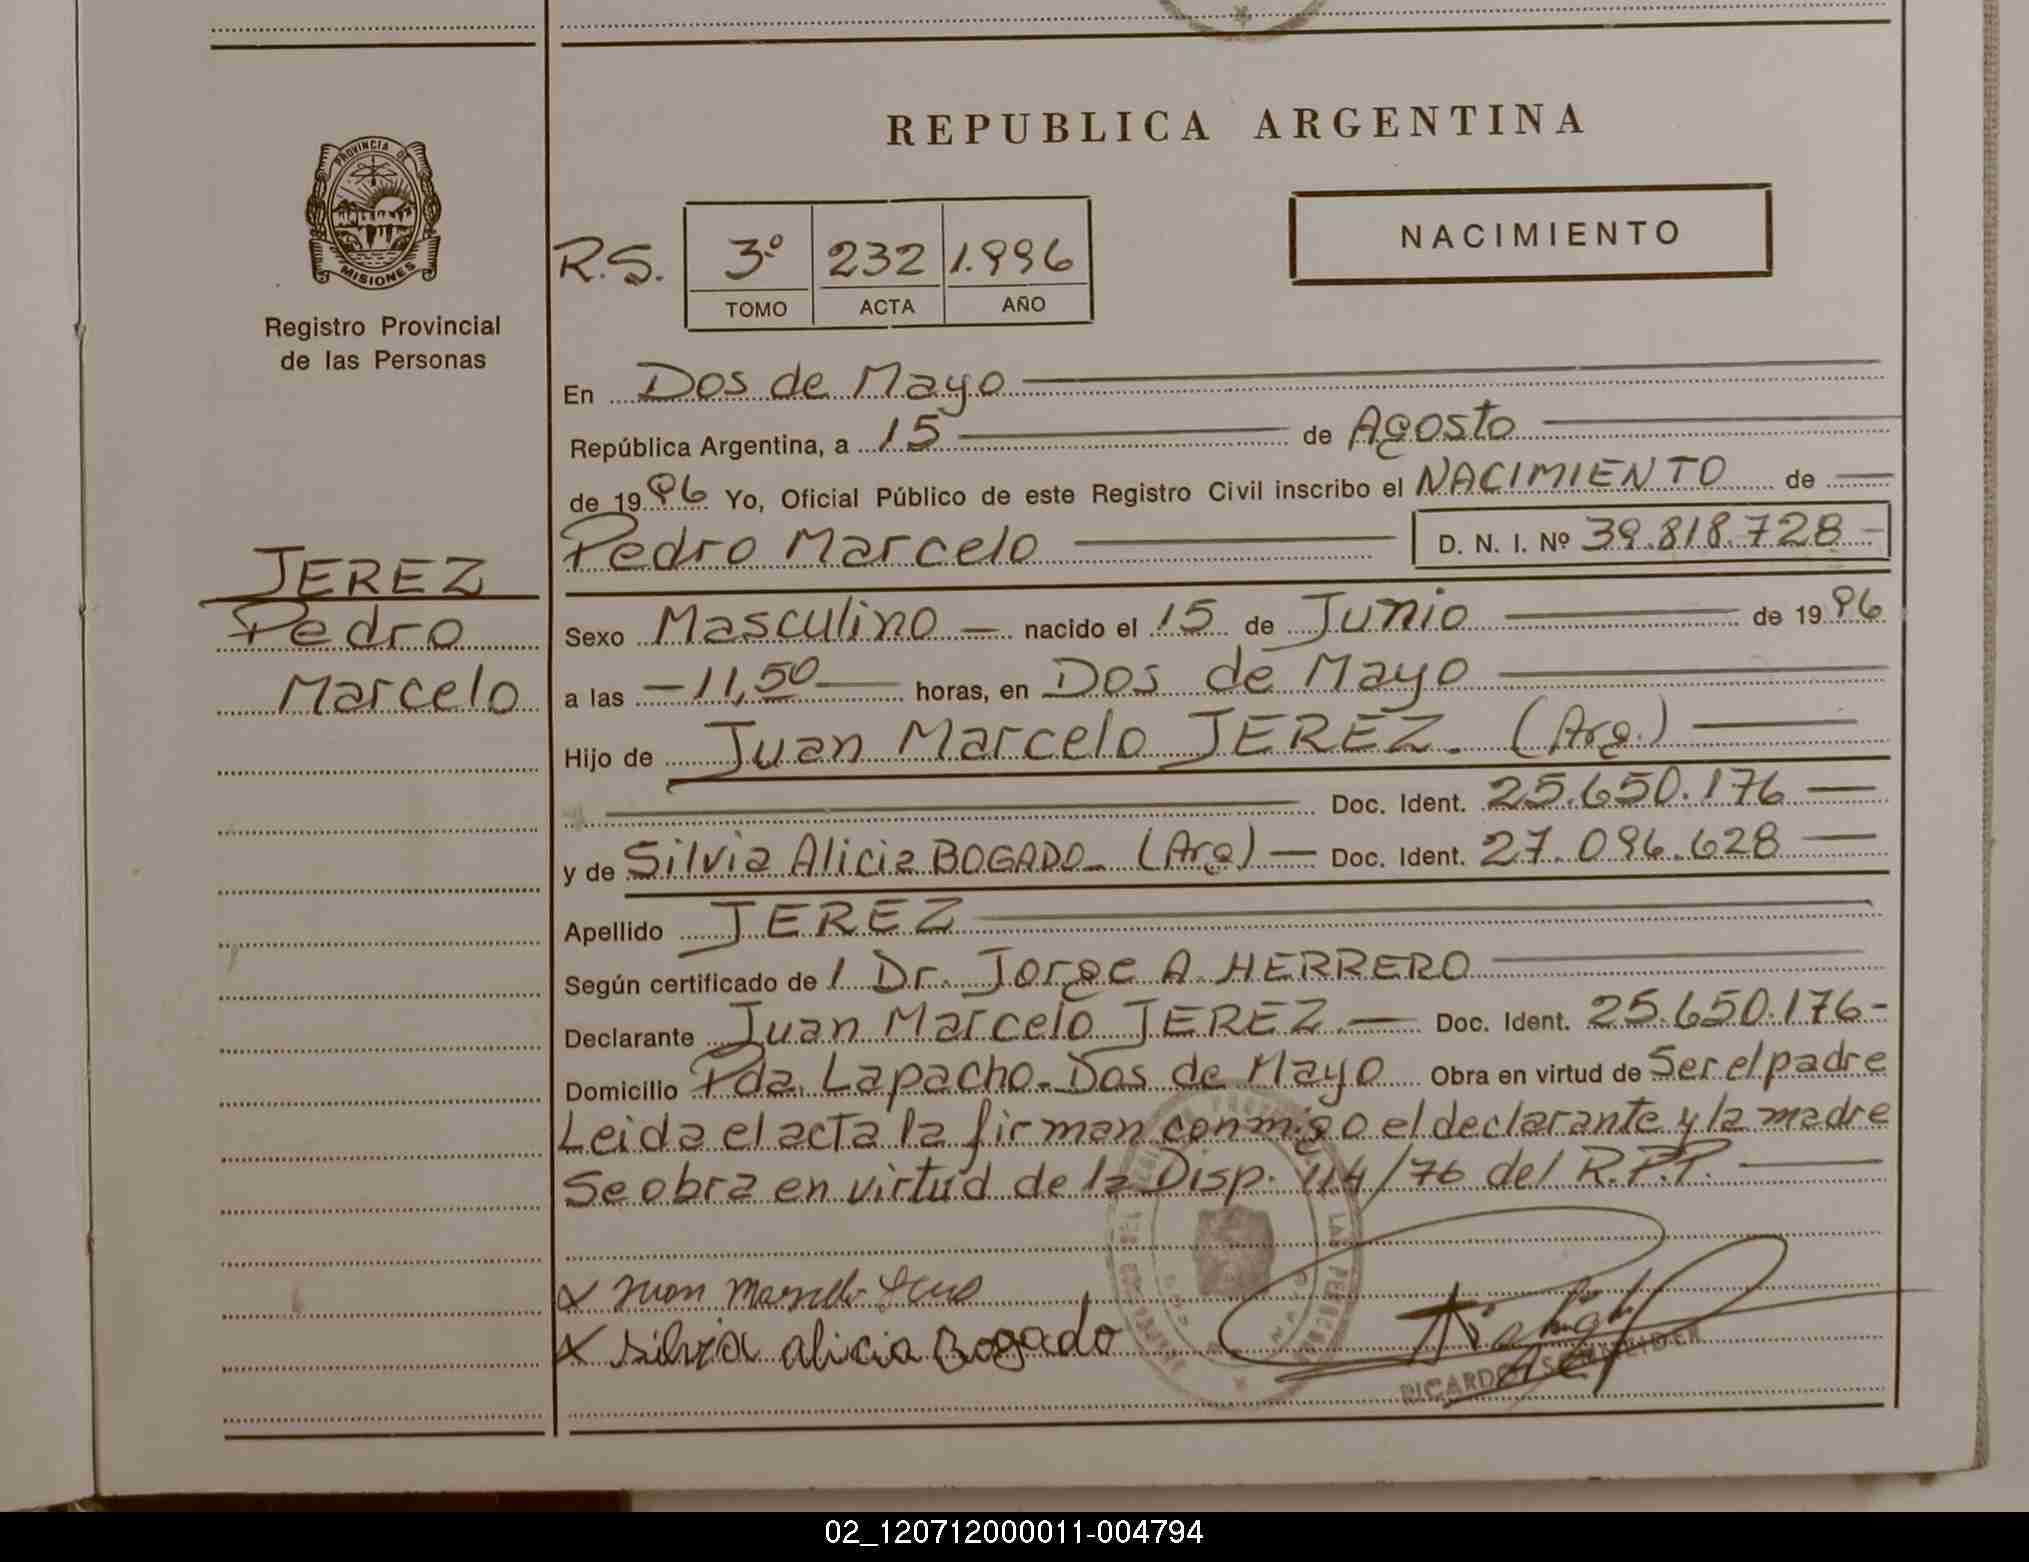 REPUBLICA ARGENTINA
PROVINCIA DE
MISIONES
Registro Provincial
de las Personas
NACIMIENTO
R.S. 3º 232 1.996
TOMO ACTA AÑO
En Dos de Mayo
República Argentina, a 15 de Agosto
de 1996 Yo, Oficial Público de este Registro Civil inscribo el NACIMIENTO de
Pedro Marcelo D. N. I. Nº 39.818.728-
JEREZ
Pedro
Marcelo
Sexo Masculino nacido el 15 de Junio de 1996
a las -11,50 horas, en Dos de Mayo
Hijo de Juan Marcelo JEREZ. (Arg.)
Doc. Ident. 25.650.176
y de Silvia Alicia BOGADO (Arg) Doc. Ident. 27.096.628
Apellido JEREZ
Según certificado de l Dr. Jorge A. HERRERO
Declarante Juan Marcelo JEREZ. Doc. Ident. 25.650.176-
Domicilio Pda. Lapacho. Dos de Mayo Obra en virtud de Ser el padre
Leida el acta la firman conmigo el declarante y la madre
Se obra en virtud de la Disp. 114/76 del R.P.P.
x Juan Marcelo
x Silvia alicia Bogado
RICARDO SCHNEIDER
02_120712000011-004794